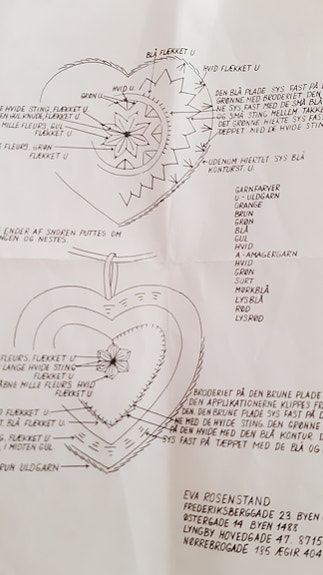 BLÅ FLÆKKET U
HVID FLÆKKET U
HVID U.
GRØN U.
HVIDE STING, FLÆKKET U.
HULKNUDE, FLÆKKET U.
MILLE FLEURS, GUL
FLÆKKET U.
FLEURS, GRØN
FLÆKKET U.
DEN BLÅ PLADE SYS FAST PÅ D
GRØNNE MED BRODERIET. DEN
NE SYS FAST MED DE SMÅ BLÅ
OG SMÅ STING MELLEM TAKK
DET GRØNNE HJERTE SYS FAST
TÆPPET MED DE HVIDE STIN
UDENOM HJERTET SYS BLÅ
KONTURST. U.
GARNFARVER
U - ULDGARN
ORANGE
BRUN
GRØN
BLÅ
GUL
HVID
A - AMAGERGARN
HVID
GRØN
SURT
MØRKBLÅ
LYSBLÅ
RØD
LYSRØD
ENDER AF SNOREN PUTTES OM
NGEN OG NESTES.
FLEURS, FLÆKKET U.
LANGE HVIDE STING
FLÆKKET U.
ÅBNE MILLE FLEURS HVID
FLÆKKET U.
FLÆKKET U.
BLÅ FLÆKKET U.
FLÆKKET U.
I MIDTEN GUL
RUN ULDGARN
BRODERIET PÅ DEN BRUNE PLAD
DEN APPLIKATIONERNE KLIPPES FR
DEN. DEN BRUNE PLADE SYS FAST PÅ D
NE MED DE HVIDE STING. DEN GRØNNE
PÅ DEN HVIDE MED DEN BLÅ KONTUR. D
SYS FAST PÅ TÆPPET MED DE BLÅ OG
EVA ROSENSTAND
FREDERIKSBERGGADE 23 BYEN
ØSTERGADE 14 BYEN 1488
LYNGBY HOVEDGADE 47. 8715
NØRREBROGADE 185 ÆGIR 404